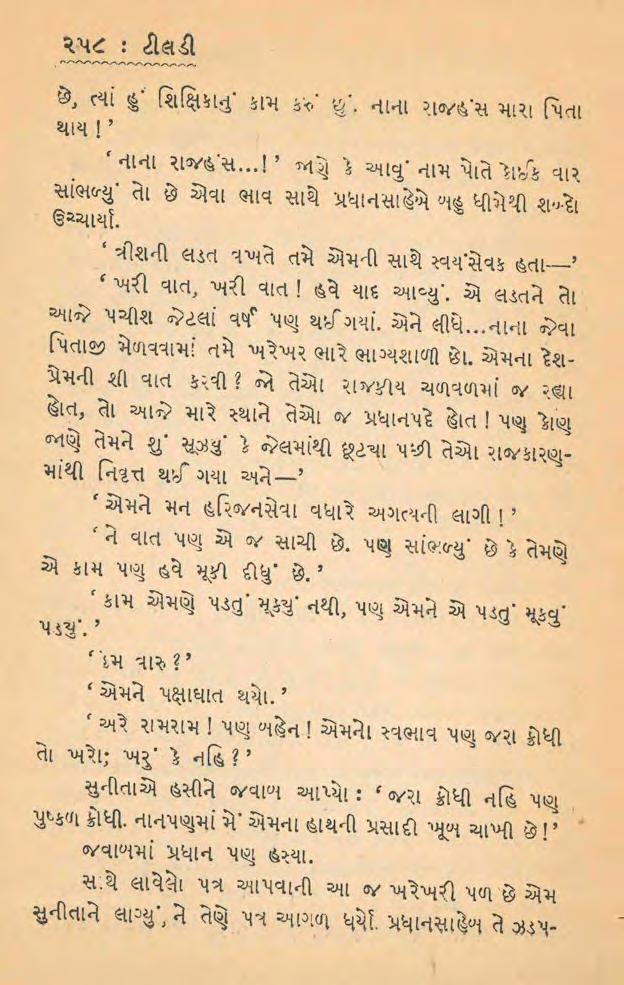 ૨૫૮ : ટીલડી
છે, ત્યાં હું શિક્ષિકાનું કામ કરું છું. નાના રાજહંસ મારા પિતા
થાય !’
‘નાના રાજહંસ...!’ જાણે કે આવું નામ પોતે કોઈક વાર
સાંભળ્યું તો છે એવા ભાવ સાથે પ્રધાનસાહેબે બહુ ધીમેથી શબ્દો
ઉચ્ચાર્યા.
‘ ત્રીશની લડત વખતે તમે એમની સાથે સ્વયંસેવક હતા—’
‘ ખરી વાત, ખરી વાત! હવે યાદ આવ્યું. એ લડતને તો
આજે પચીશ જેટલાં વર્ષ પણ થઈ ગયાં. એને લીધે...નાના જેવા
પિતાજી મેળવવામાં તમે ખરેખર ભારે ભાગ્યશાળી છો. એમના દેશ-
પ્રેમની શી વાત કરવી? જો તેઓ રાજકીય ચળવળમાં જ રહ્યા
હોત, તો આજે મારે સ્થાને તેઓ જ પ્રધાનપદે હોત ! પણ કોણ
જાણે તેમને શું સૂઝ્યું કે જેલમાંથી છૂટ્યા પછી તેઓ રાજકારણ-
માંથી નિવૃત્ત થઈ ગયા અને—’
‘એમને મન હરિજનસેવા વધારે અગત્યની લાગી !’
‘ને વાત પણ એ જ સાચી છે. પણ સાંભળ્યું છે કે તેમણે
એ કામ પણ હવે મૂકી દીધું છે.’
‘કામ એમણે પડતું મૂક્યું નથી, પણ એમને એ પડતું મૂકવું
પડ્યું.’
‘કેમ વારુ ?’
‘એમને પક્ષાઘાત થયો.’
‘અરે રામરામ ! પણ બહેન ! એમનો સ્વભાવ પણ જરા ક્રોધી
તો ખરો; ખરું કે નહિ ?’
સુનીતાએ હસીને જવાબ આપ્યો : ‘જરા ક્રોધી નહિ પણ
પુષ્કળ ક્રોધી. નાનપણમાં મેં એમના હાથની પ્રસાદી ખૂબ ચાખી છે!’
જવાબમાં પ્રધાન પણ હસ્યા.
સાથે લાવેલો પત્ર આપવાની આ જ ખરેખરી પળ છે એમ
સુનીતાને લાગ્યું, ને તેણે પત્ર આગળ ધર્યો. પ્રધાનસાહેબ તે ઝડપ-